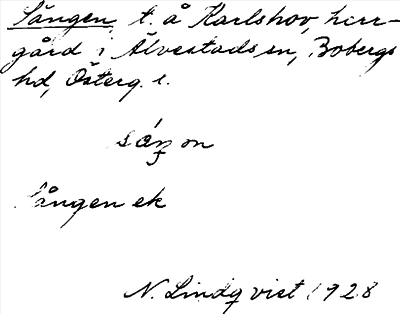 Sången, t. å Karlshov, herr-
gård i Älvestads sn, Bobergs
hd, Österg. l.
såŋ on
Sången ek
N. Lindqvist 1928